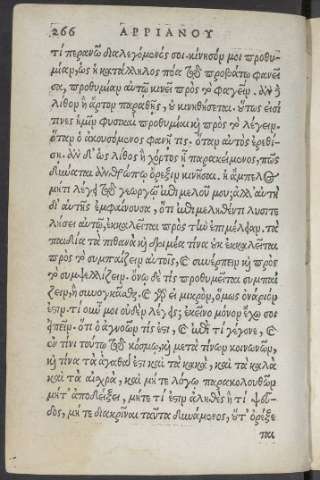 266 ΑΡΡΙΑΝΟΥ
τί περανῶ διαλεγόμενός σοι. κίνησόν μοι προθυ-
μίαν, ὡς ἡ κατάλληλος πόα τῷ προβάτῳ φανεῖ
σα, προθυμίαν αὐτῷ κινεῖ πρὸς τὸ φαγεῖν. ἂν ἢ
λίθον ἢ ἄρτον παραθῇς, οὐ κινηθήσεται. οὕτως εἰσί
τινες ἡμῖν φυσικαὶ προθυμίαι καὶ πρὸς τὸ λέγειν.
ὅταν ὁ ἀκουσόμενος φανῇ τις. ὅταν αὐτὸς ἐρεθί-
σῃ. ἂν δ' ὡς λίθος ἢ χόρτος ᾖ παρακείμενος, πῶς
δύναται ἀνθρώπῳ ὄρεξιν κινῆσαι. ἡ ἄμπελος
μήτι λέγει τῷ γεωργῷ ἐπιμελοῦ μου; ἀλλ' αὐτὴ
δι' αὑτῆς ἐμφαίνουσα, ὅτι ἐπιμεληθέντι λυσιτε
λήσει αὐτῷ, ἐκκαλεῖται πρὸς τὴν ἐπιμέλειαν. τὰ
παιδία τὰ πιθανὰ καὶ δριμέα τίνα οὐκ ἐκκαλεῖται
πρὸς τὸ συμπαίζειν αὐτοῖς, καὶ συνέρπειν καὶ πρὸς
τὸ συμψελλίζειν. ὄνῳ δὲ τίς προθυμεῖται συμπαί
ζειν, ἢ συνογκᾶσθαι. καὶ γὰρ εἰ μικρὸν, ὅμως ὀνάριόν
ἐστιν. τί οὖν μοι οὐδὲν λέγεις; ἐκεῖνο μόνον ἔχω σοι
εἰπεῖν. ὅτι ὁ ἀγνοῶν τίς ἐστι, καὶ ἐπὶ τί γέγονε, καὶ
ἐν τίνι τούτῳ τῷ κόσμῳ, καὶ μετὰ τίνων κοινωνῶν,
καὶ τίνα τὰ ἀγαθά ἐστι καὶ τὰ κακὰ, καὶ τὰ καλὰ
καὶ τὰ αἰσχρὰ, καὶ μήτε λόγῳ παρακολουθῶν
μήτ' ἀποδείξει, μήτε τί ἐστιν ἀληθὲς ἢ τί ψεῦ-
δος, μήτε διακρῖναι ταῦτα δυνάμενος, οὔτ' ὀρέξε
ται